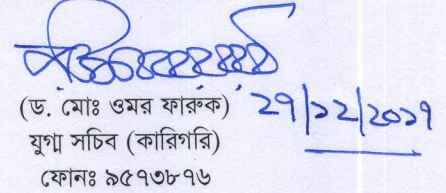 (ড. মোঃ ওমর ফারুক) ২৭/১২/২০১৭
যুগ্ম সচিব (কারিগরি)
ফোনঃ ৯৫৭৩৮৭৬